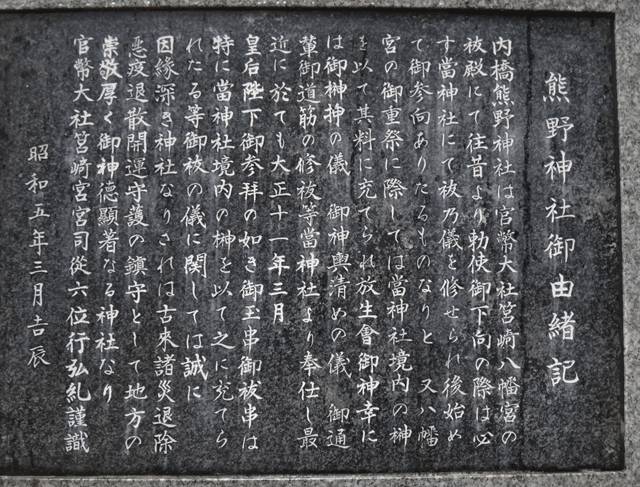 熊野神社御由緒記
内橋熊野神社は官幣大社筥崎八幡宮の
祓殿にて往昔より勅使御下向の際は必
す當神社にて祓乃儀を修せられ後始め
て御参向ありたるものなりと 又八幡
宮の御重祭に際しては當神社境内の榊
を以て其料に充てられ放生會御神幸に
は御榊押の儀 御神輿清めの儀 御通
輦御道筋の修祓等當神社より奉仕し最
近に於ても大正十一年三月
皇后陛下御参拜の如き御玉串御祓串は
特に當神社境内の榊を以て之に充てら
れたる等御祓の儀に関しては誠に
因縁深き神社なりされは古来諸災退除
悪疫退散開運守護の鎮守として地方の
崇敬厚く御神德顯著なる神社なり
官幣大社筥崎宮宮司從六位行弘糺謹識
昭和五年三月吉辰